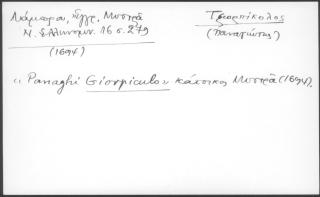 Λάμπρου, Ἔγγρ. Μυστρᾶ
Ν. Ἑλληνομν. 16 σ. 279
(1694)
Τζιορπίκολος
(Παναγιώτης)
"Panaghi Giorpiculo» κάτοικος Μυστρᾶ (1694).